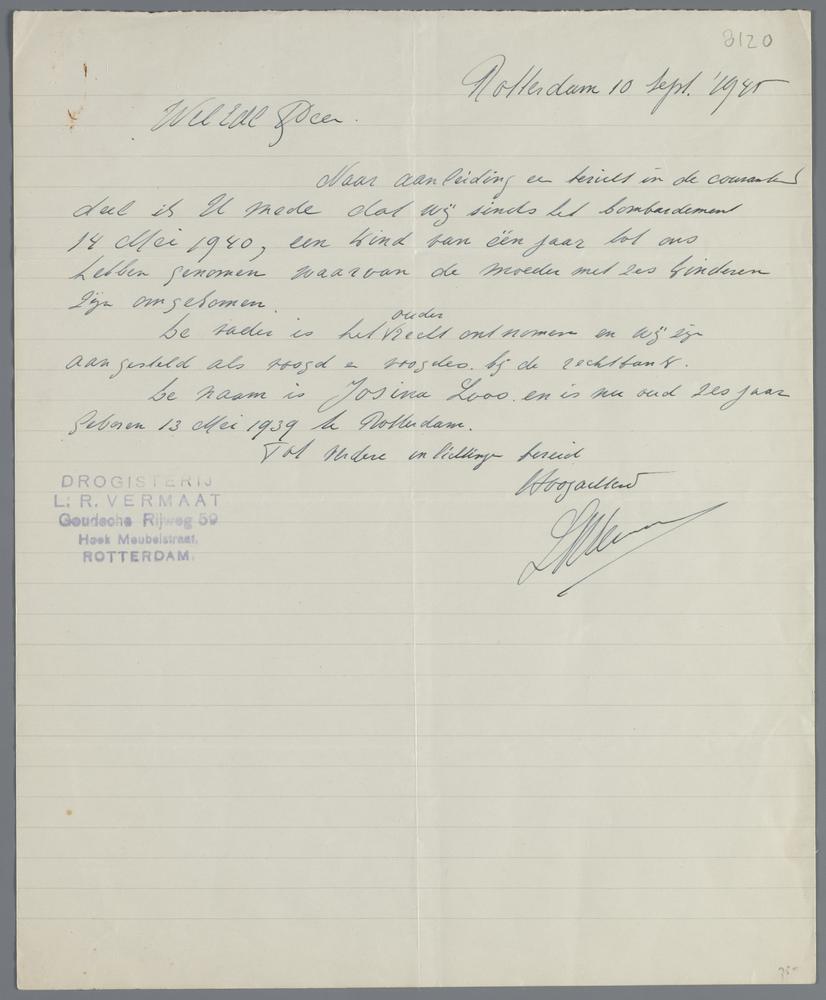 3120
Rotterdam 10 Sept. '1945
Wel Edl Heer.
Naar aanleiding een bericht in de courant
deel ik U mede dat wij sinds het bombardement
14 Mei 1940, een kind van één jaar tot ons
hebben genomen waarvan de moeder met zes kinderen
zijn omgekomen.
De vader is het ouderrecht ontnomen en wij zijn
aangesteld als voogd en voogdes. bij de rechtbank.
De naam is Josina Loos. en is nu oud zes jaar
Geboren 13 Mei 1939 te Rotterdam.
Tot verdere inlichtingen bereid
Hoogachtend
DROGISTERIJ
L. R. VERMAAT
Goudsche Rijweg 59
Hoek Meubelstraat,
ROTTERDAM.